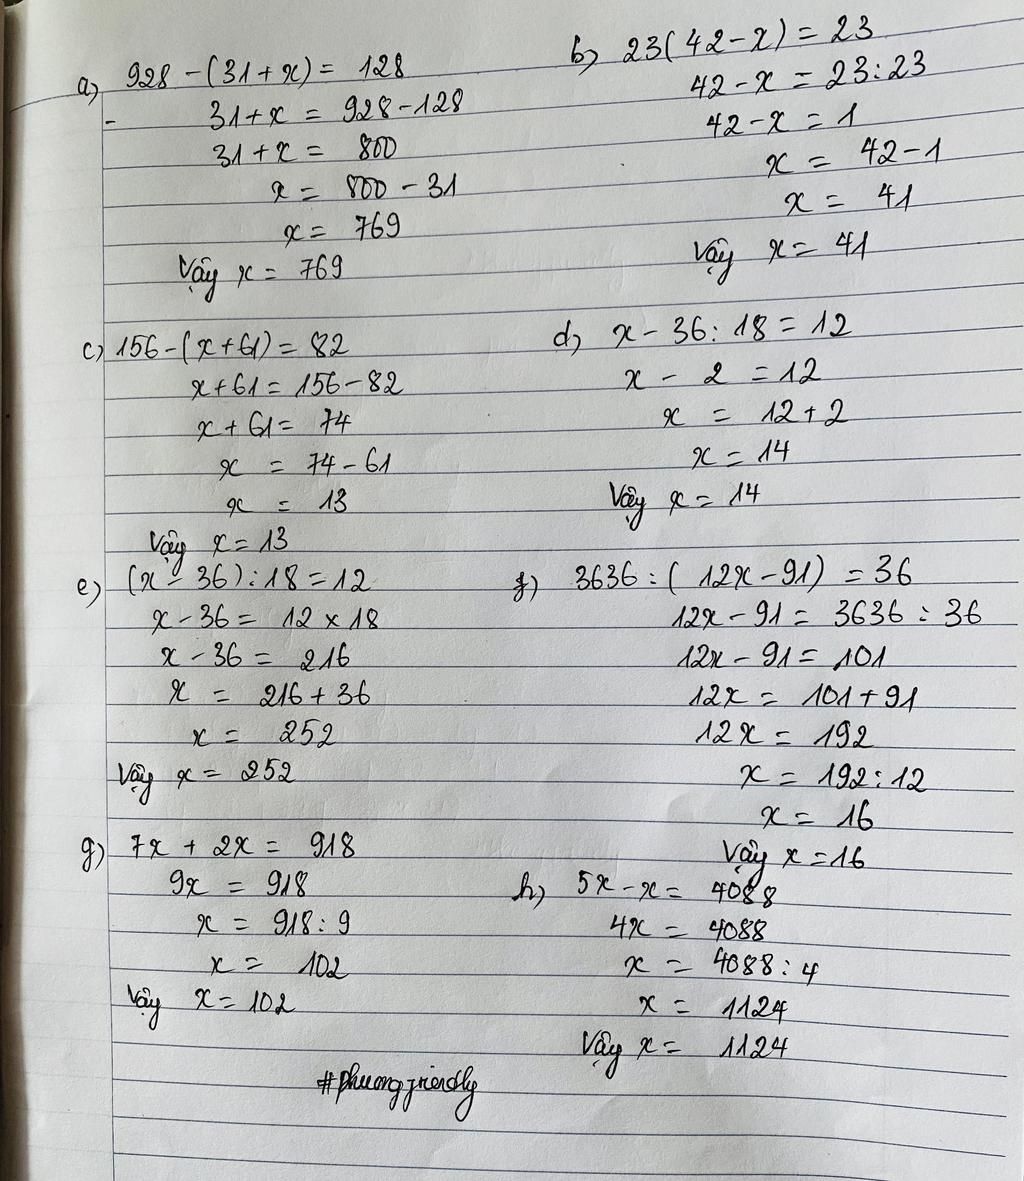 a) 928 - (31 + x) = 128
31 + x = 928 - 128
31 + x = 800
x = 800 - 31
x = 769
Vậy x = 769
b) 23(42 - x) = 23
42 - x = 23 : 23
42 - x = 1
x = 42 - 1
x = 41
Vậy x = 41
c) 156 - (x + 61) = 82
x + 61 = 156 - 82
x + 61 = 74
x = 74 - 61
x = 13
Vậy x = 13
d) x - 36 : 18 = 12
x - 2 = 12
x = 12 + 2
x = 14
Vậy x = 14
e) (x - 36) : 18 = 12
x - 36 = 12 x 18
x - 36 = 216
x = 216 + 36
x = 252
Vậy x = 252
f) 3636 : (12x - 91) = 36
12x - 91 = 3636 : 36
12x - 91 = 101
12x = 101 + 91
12x = 192
x = 192 : 12
x = 16
Vậy x = 16
g) 7x + 2x = 918
9x = 918
x = 918 : 9
x = 102
Vậy x = 102
h) 5x - x = 4088
4x = 4088
x = 4088 : 4
x = 1124
Vậy x = 1124
#phuongfriendly